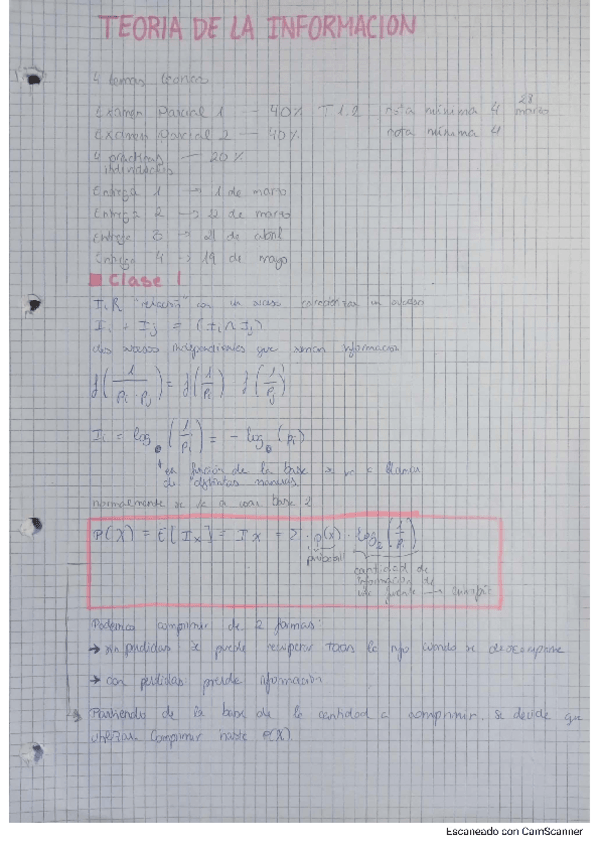 TEORIA DE LA INFORMACION
4 temas teoria
Examen Parcial 1 — 40% T 1.2 nota mínima 4 28 marzo
Examen Parcial 2 — 40% nota mínima 4
4 prácticas — 20%
individuales
Entrega 1 → 1 de marzo
Entrega 2 → 22 de marzo
Entrega 3 → 21 de abril
Entrega 4 → 19 de mayo
Clase 1
con un suceso un suceso
Ii + Ij = (Ii ∩ Ij)
dos sucesos independientes que suman informacion
f(1/pi·pj) = f(1/pi) f(1/pj)
Ii = log (1/pi) = - log (pi)
en función de la base se va a llamar
de distintas maneras
normalmente se va a usar base 2
P(X) = E[Ix] = Ix = Σ · p(x) · log2 (1/pi)
cantidad de
informacion de
fuente →
Podemos comprimir de 2 formas:
→ sin perdidas se puede recuperar toda la info cuando se descomprime
→ con perdidas pierde informacion
→ Partiendo de la base de la cantidad a comprimir, se decide que
utilizar. Comprimir hasta P(X)
Escaneado con CamScanner